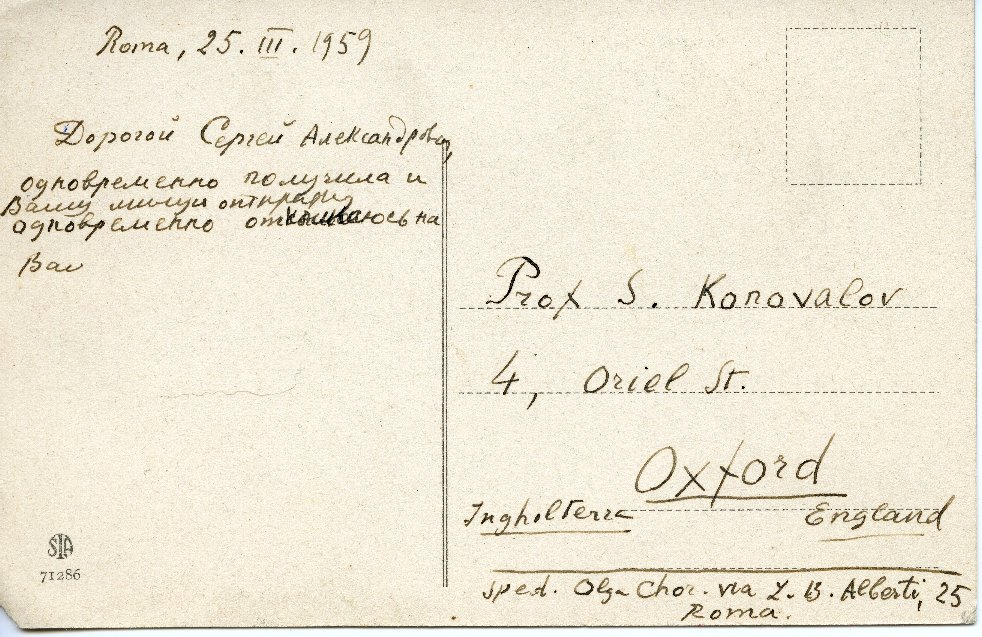 Roma, 25. III. 1959
Дорогой Сергей Александрович,
одновременно получила и
Вашу милую
одновременно на
Ваш
Prof S. Konovalov
4, Oriel St.
Oxford
Inghilterra England
sped. Olga Chor. via L. B. Alberti, 25
Roma.
SIA
71286